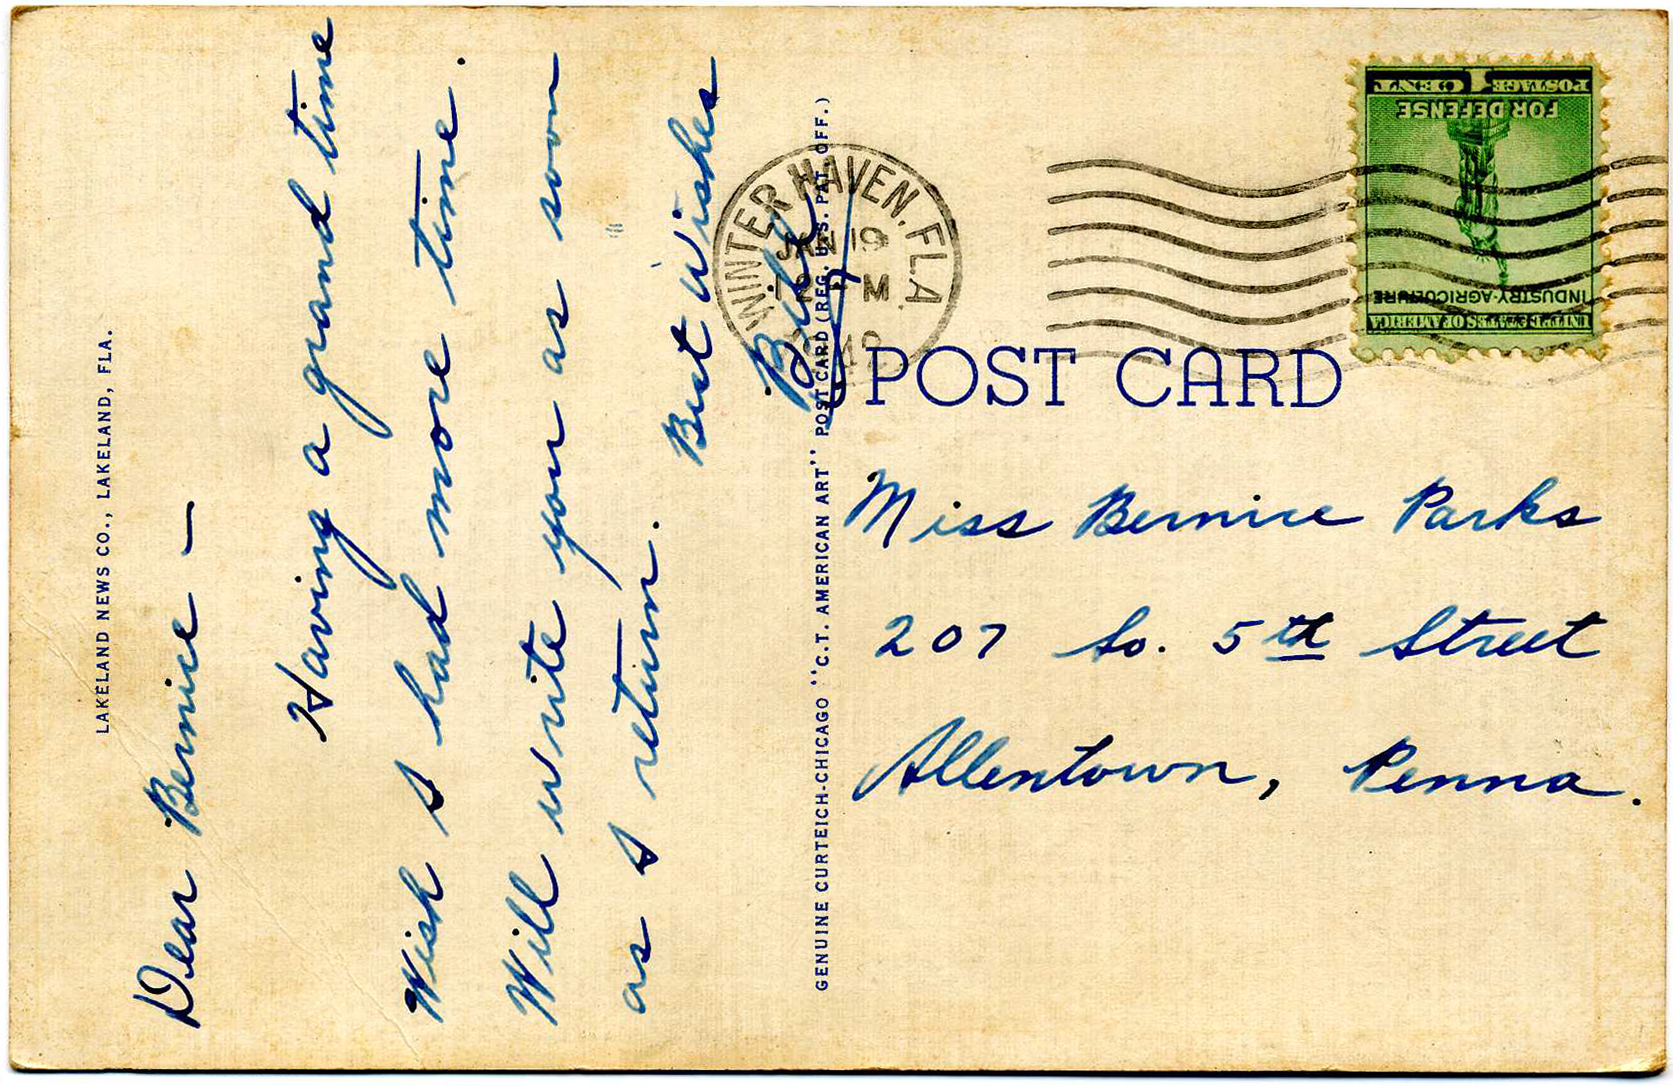 LAKELAND NEWS CO., LAKELAND, FLA.
Dear Bernice —
Having a grand time
Wish I had more time.
Will write you as soon
as I return.
Best Wishes
GENUINE CURTEICH-CHICAGO "C.T. AMERICAN ART" POST CARD (REG. U.S. PAT. OFF.)
WINTER HAVEN, FLA.
JAN 19
POSTAGE 1 CENT
FOR DEFENSE
INDUSTRY-AGRICULTURE
UNITED STATES OF AMERICA
POST CARD
Miss Bernice Parks
207 So. 5th Street
Allentown, Penna.